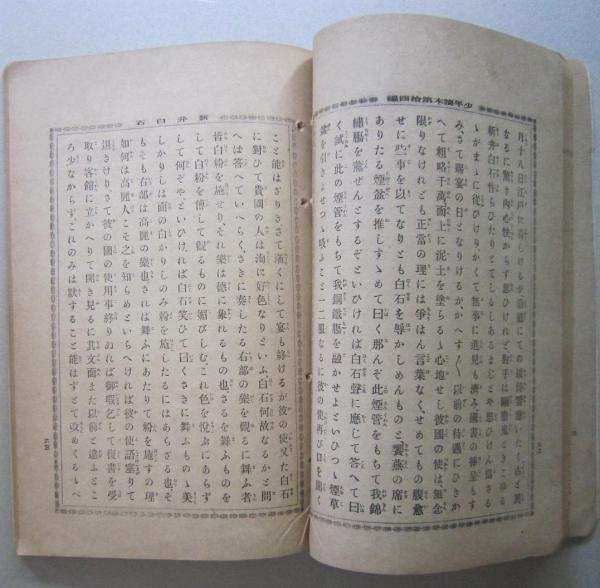 少年讀本第拾四編
みさて賜宴の日となりけるがかへすがへすも以前の待遇にひきか
へて粗略千萬面上に泥土を塗らるゝ心地せし彼國の使は無念
限りなけれども正當の理には爭はん言葉なくせめてもの腹愈
せに些事を以てなりとも白石を辱かしめんものと饗燕の席に
ありたる煙盆を推しすゝめて曰く那んぞ此煙管をもちて我錦
繡膓を薰ぜんとするぞといひければ白石聲に應じて答へて曰
く試に此の煙管をもちて我銅鐵膓を融かせよといひつゝ煙草
盆を引きよせつゝ吸ふこと一二服なるに彼の使再び口を開く
新井白石
こと能はざりきさて漸くにして宴も終けるが彼の使又た白石
に對ひて貴國の人は洵に好色なりといふ白石何故なるかと問
へば答へていへらく、さきに奏したる右部の樂を觀るに舞ふ者
皆白粉を施せりそれ樂は德に象れるもの也さるを舞ふものを
して白粉を傅して觀るものに媚びしむこれ色を悅ぶにあらず
して何ぞやといひければ白石笑ひて曰くさきに舞ふものゝ美
しかりしは面の白かりしのみ粉を施したるにはあらざる也そ
もそも右部は高麗の樂也されば舞ふにあたりて粉を施すの理
如何は高麗人こそ之を知らめといらへければ彼の使語塞りて
退きけりさて彼の國の使用事終りぬれば御暇乞して復書を受
取り客館に立かへりて開き見るに其文面また以前と違ふとこ
ろ少なからず、これのみは默すること能はずとて改めくるゝべ